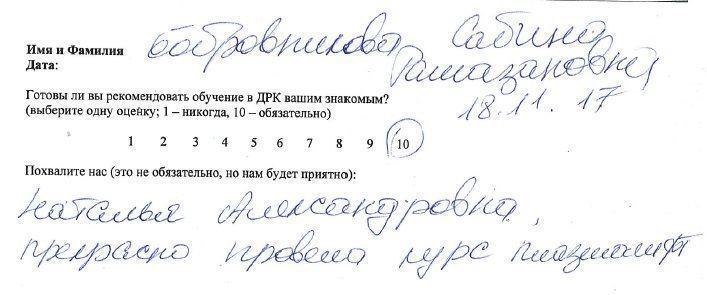 Имя и Фамилия Бобровникова Сабина
Дата: Рамазановна
18.11.17
Готовы ли вы рекомендовать обучение в ДРК вашим знакомым?
(выберите одну оценку; 1 – никогда, 10 – обязательно)
1 2 3 4 5 6 7 8 9 10
Похвалите нас (это не обязательно, но нам будет приятно):
Наталья Александровна,
прекрасно провела курс плазмолифт